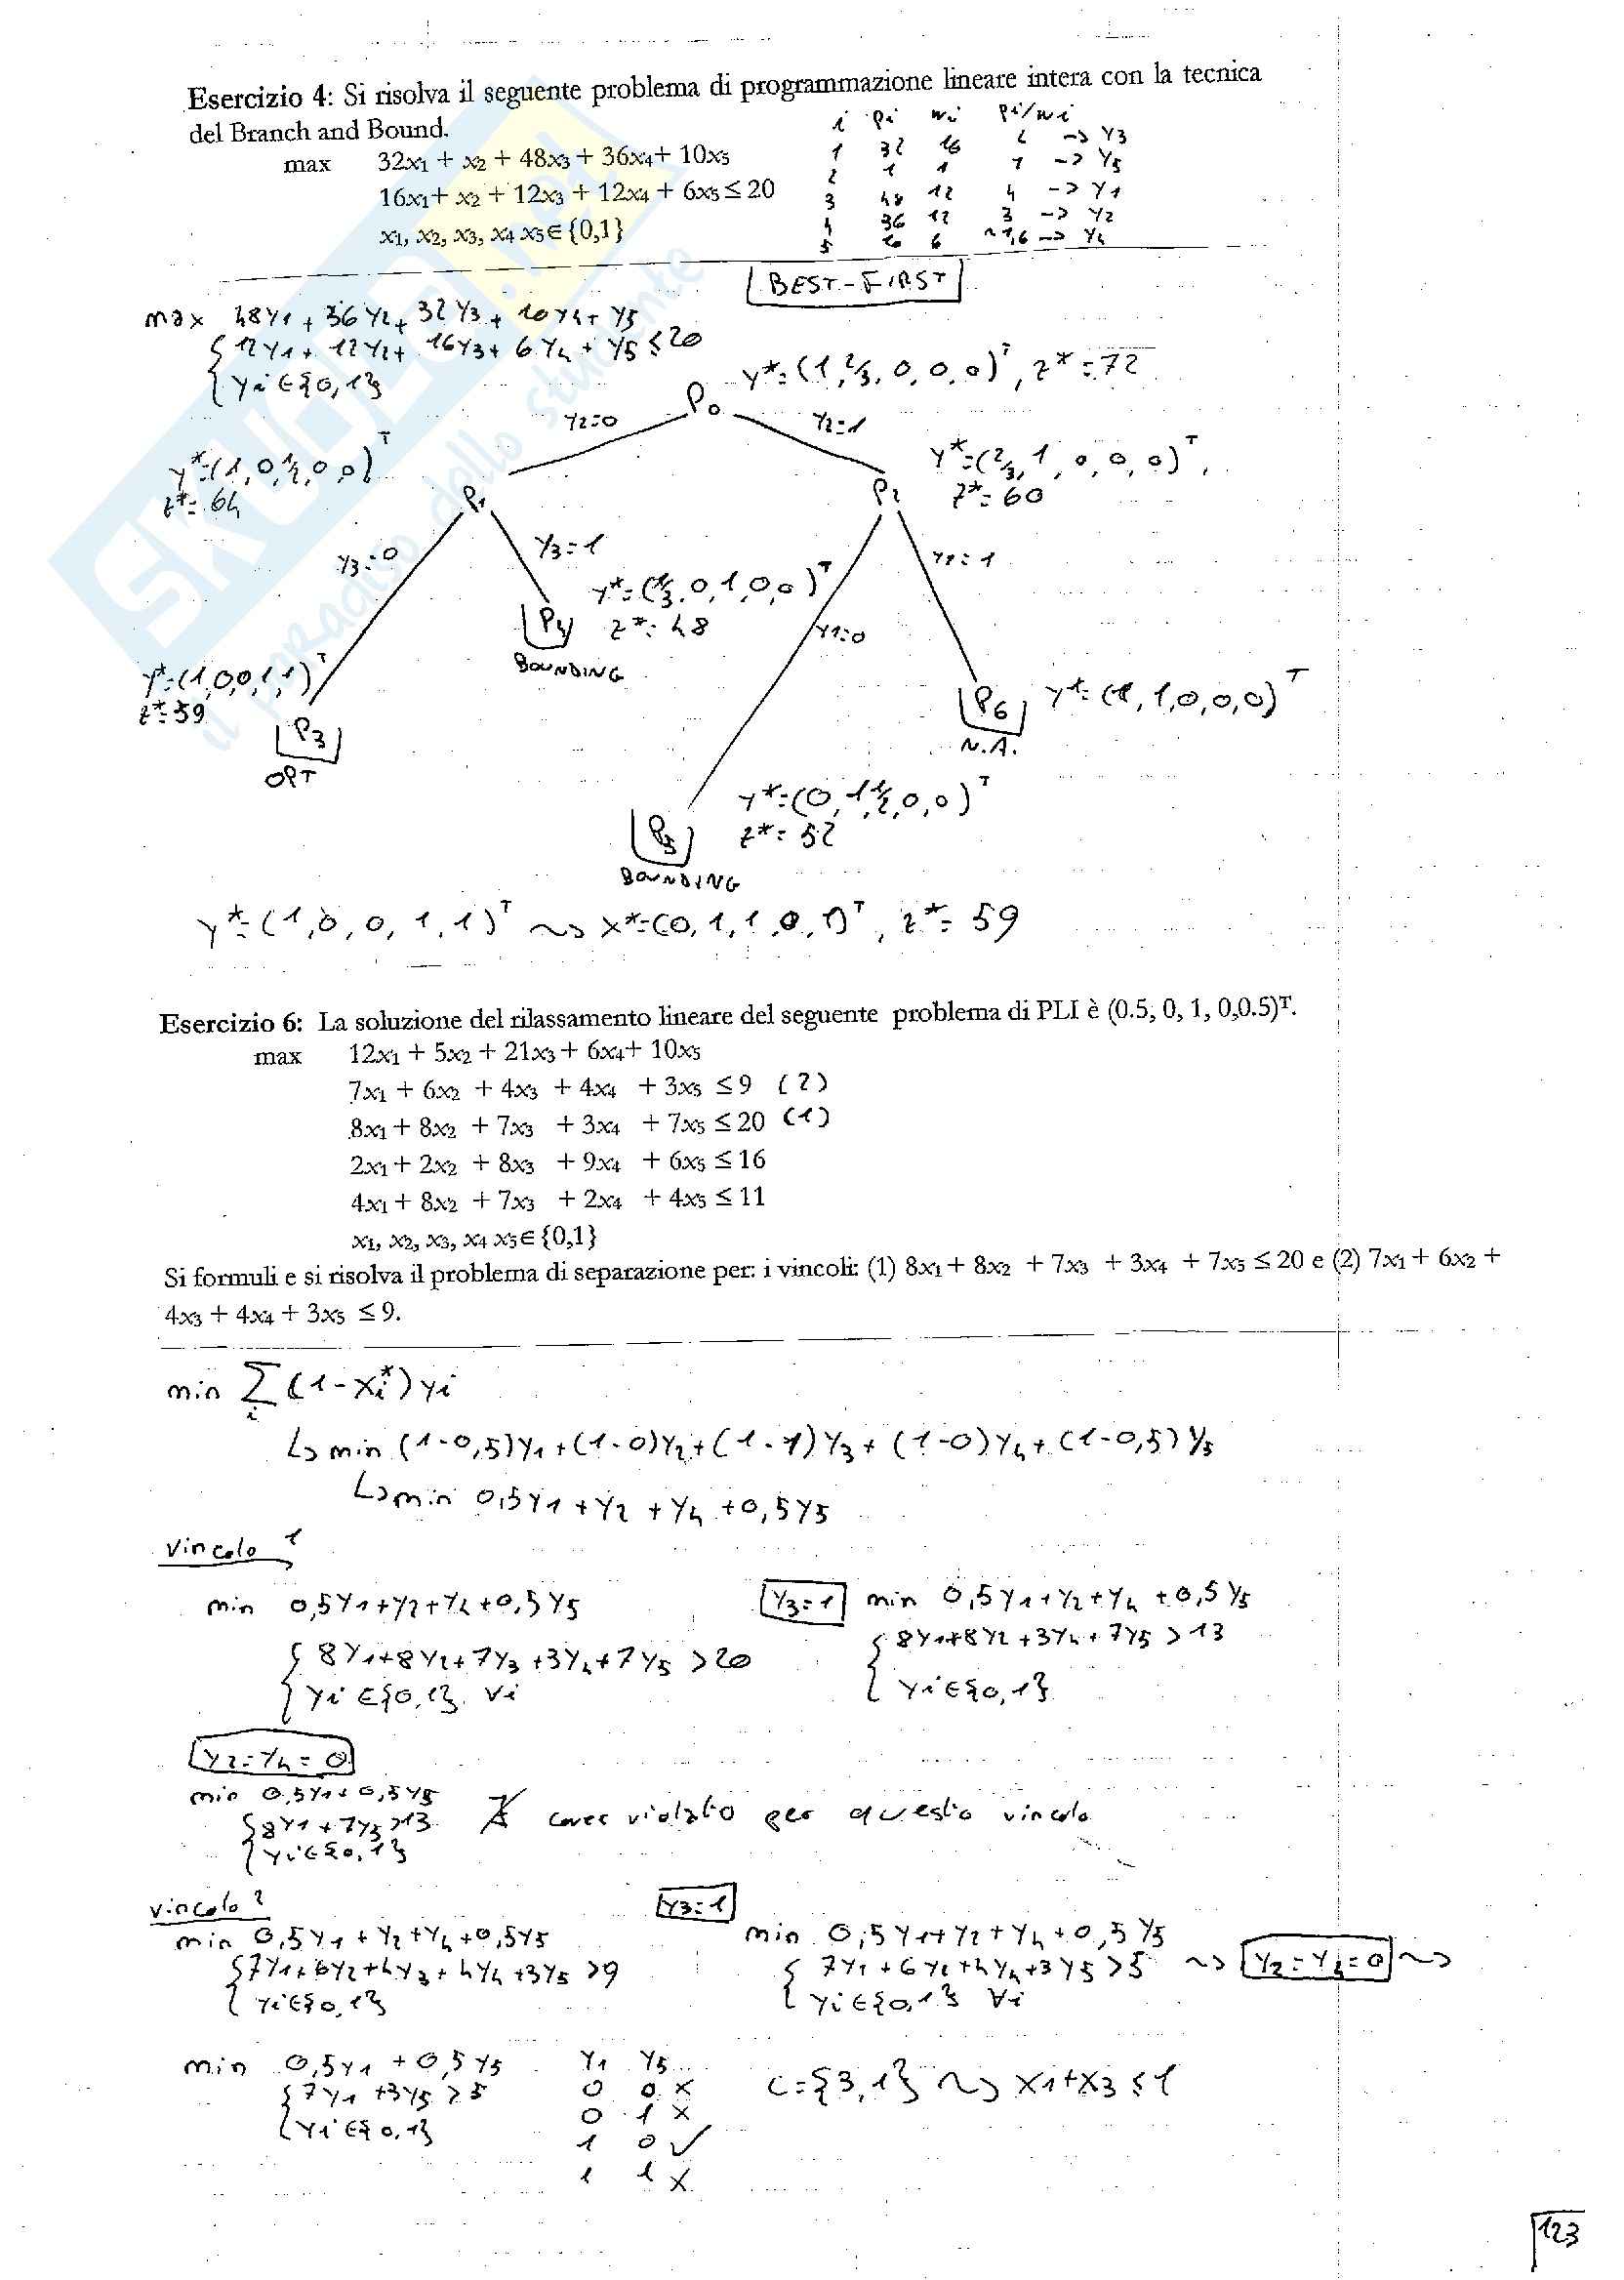 Esercizio 4: Si risolva il seguente problema di programmazione lineare intera con la tecnica
del Branch and Bound.
max 32x₁ + x₂ + 48x₃ + 36x₄+ 10x₅
16x₁+ x₂ + 12x₃ + 12x₄ + 6x₅ ≤ 20
x₁, x₂, x₃, x₄ x₅∈{0,1}
i pi wi pi/wi
1 32 16 2 -> Y3
2 1 1 1 -> Y5
3 48 12 4 -> Y1
4 36 12 3 -> Y2
5 10 6 ~1,6 -> Y4
BEST-FIRST
max 48Y1 + 36Y2 + 32Y3 + 10Y4 + Y5
12Y1 + 12Y2 + 16Y3 + 6Y4 + Y5 ≤ 20
Yi ∈ {0,1}
P0 Y*=(1,2/3,0,0,0)ᵀ, Z*=72
Y2=0 Y2=1
Y*=(1,0,1/2,0,0)ᵀ
Z*=64
P1
Y*=(2/3,1,0,0,0)ᵀ,
Z*=60
P2
Y3=0 Y3=1 Y1=0 Y1=1
Y*=(1/3,0,1,0,0)ᵀ
P4 Z*=48
BOUNDING
Y*=(1,0,0,1,1)ᵀ
Z*=59
P3
OPT
P6 Y*=(1,1,0,0,0)ᵀ
N.A.
Y*=(0,1,1/2,0,0)ᵀ
P5 Z*=52
BOUNDING
Y*=(1,0,0,1,1)ᵀ ~> X*=(0,1,1,0,1)ᵀ, Z*=59
Esercizio 6: La soluzione del rilassamento lineare del seguente problema di PLI è (0.5, 0, 1, 0,0.5)ᵀ.
max 12x₁ + 5x₂ + 21x₃ + 6x₄+ 10x₅
7x₁ + 6x₂ + 4x₃ + 4x₄ + 3x₅ ≤ 9 (2)
8x₁ + 8x₂ + 7x₃ + 3x₄ + 7x₅ ≤ 20 (1)
2x₁ + 2x₂ + 8x₃ + 9x₄ + 6x₅ ≤ 16
4x₁ + 8x₂ + 7x₃ + 2x₄ + 4x₅ ≤ 11
x₁, x₂, x₃, x₄ x₅∈{0,1}
Si formuli e si risolva il problema di separazione per: i vincoli: (1) 8x₁ + 8x₂ + 7x₃ + 3x₄ + 7x₅ ≤ 20 e (2) 7x₁ + 6x₂ +
4x₃ + 4x₄ + 3x₅ ≤ 9.
min Σi (1-Xi*) Yi
↳ min (1-0,5)Y1 + (1-0)Y2 + (1-1)Y3 + (1-0)Y4 + (1-0,5)Y5
↳ min 0,5Y1 + Y2 + Y4 + 0,5Y5
Vincolo 1
min 0,5Y1+Y2+Y4+0,5Y5
8Y1+8Y2+7Y3+3Y4+7Y5 >20
Yi ∈{0,1} ∀i
Y3=1 min 0,5Y1+Y2+Y4+0,5Y5
8Y1+8Y2+3Y4+7Y5 >13
Yi∈{0,1}
Y2=Y4=0
min 0,5Y1+0,5Y5
8Y1+7Y5>13
Yi∈{0,1}
∄ cover violato per questo vincolo
Vincolo 2
min 0,5Y1+Y2+Y4+0,5Y5
7Y1+6Y2+4Y3+4Y4+3Y5 >9
Yi∈{0,1}
Y3=1
min 0,5Y1+Y2+Y4+0,5Y5
7Y1+6Y2+4Y4+3Y5 >5 ~> Y2=Y4=0 ~>
Yi∈{0,1} ∀i
min 0,5Y1+0,5Y5
7Y1+3Y5 >5
Yi∈{0,1}
Y1 Y5
0 0 x
0 1 x
1 0 ✓
1 1 x
C={3,1} ~> X1+X3 ≤1
123
SKUOLA.net
il paradiso dello studente